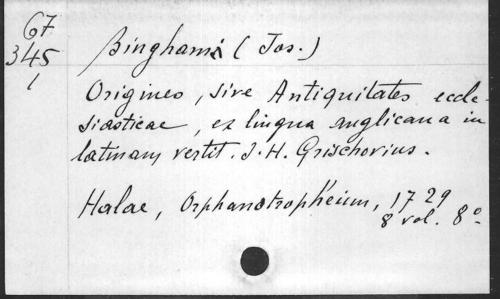 67
345
1
Binghami (Jos.)
Origines, sive Antiquitates eccle-
siasticae, ex lingua anglicana in
latinam vertit. J. H. Grischovius.
Halae, Orphanotropheium, 1729
8 vol. 8º.